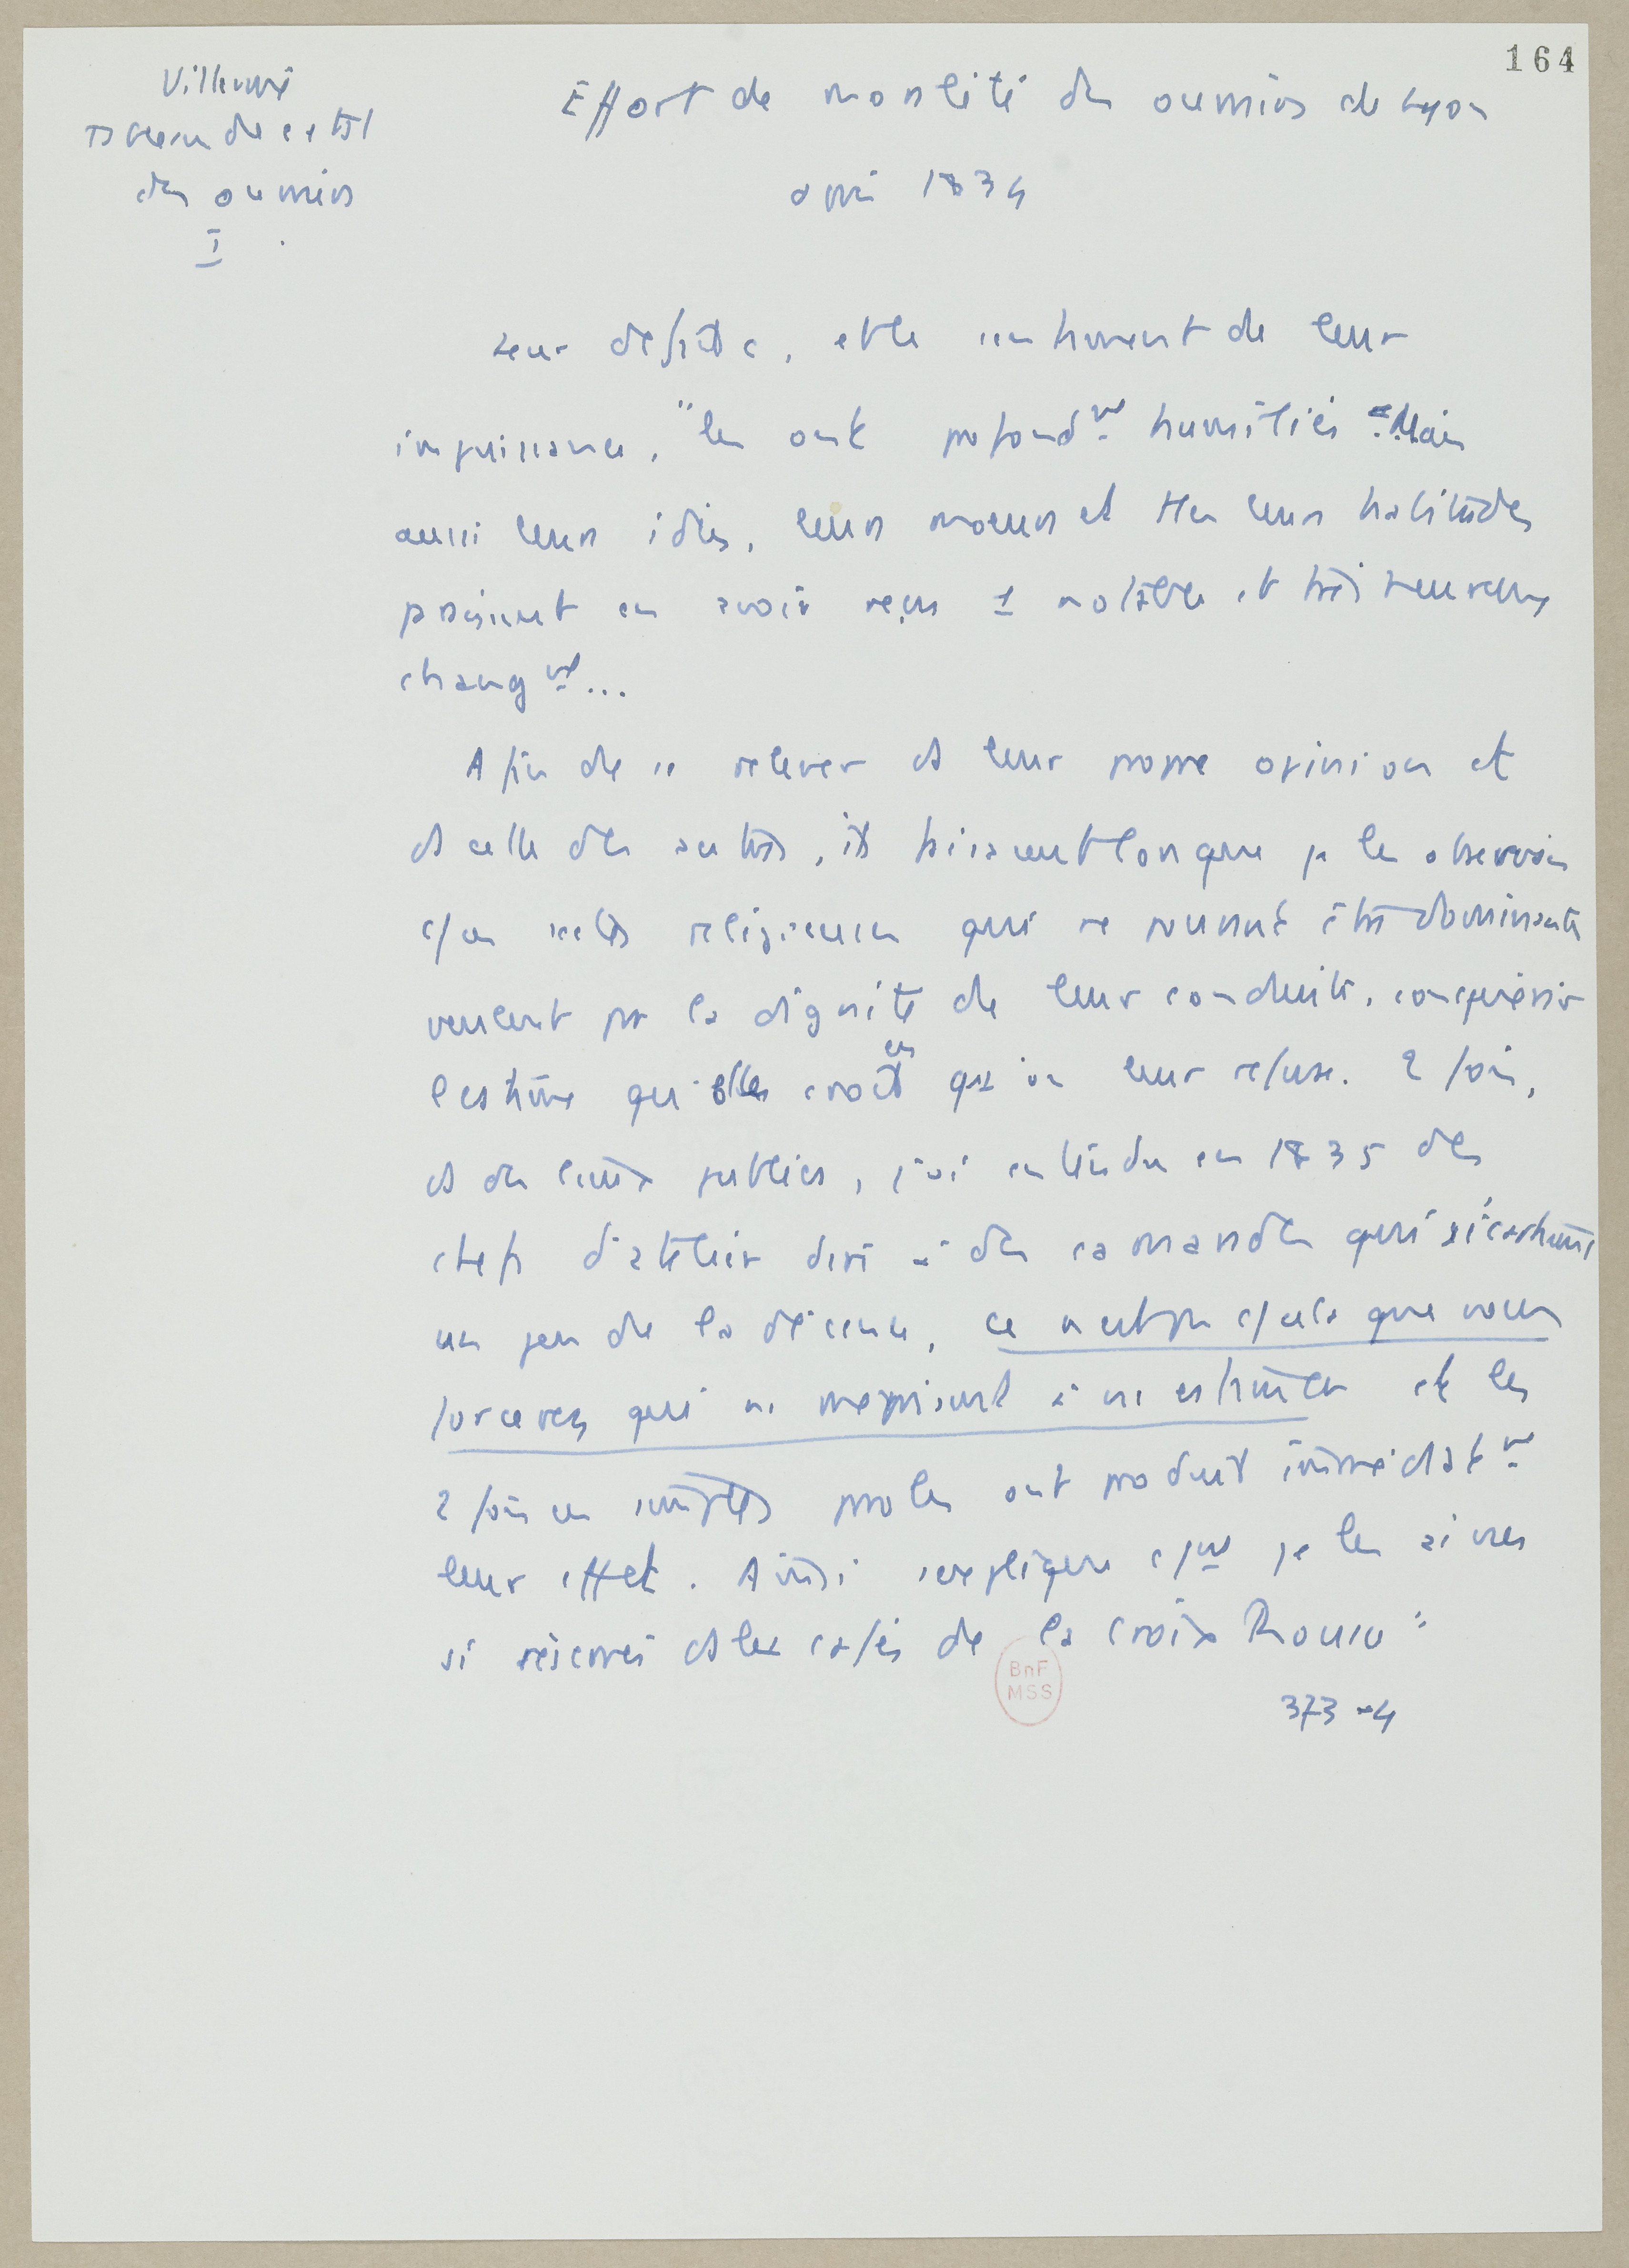 164
Villermé
Tableau de l'état
des ouvriers
I
Effort de moralité des ouvriers de Lyon
avril 1834
Leur défaite, et le sentiment de leur
impuissance, "les ont profondmt humiliés. Mais
aussi leurs idées, leurs mœurs et ttes leurs habitudes
paraissent en avoir reçu 1 notable et très heureux
changmt...
Afin de se relever ds leur propre opinion et
ds celle des autres, ils faisaient lorsque je les observais
c/ les sectes religieuses qui ne pouvant être dominantes
veulent par la dignité de leur conduite, conquérir
l'estime qu'elles croient qu'on leur refuse. 2 fois,
ds des lieux publics, j'ai entendu en 1835 des
chefs d'atelier dire à des camarades qui s'écartaient
un peu de la décence, ce n'est pas c/ cela que vous
forcerez qui ns méprisent à ns estimer et les
2 fois ces simples paroles ont produit immédiatmt
leur effet. Ainsi s'explique commt je les ai vus
si réservés ds les cafés de la Croix Rousse"
BnF
MSS
373-4